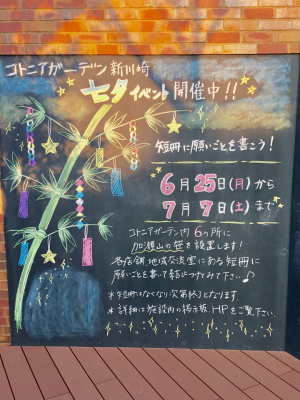 コトニアガーデン新川崎
七夕イベント開催中!!
短冊に願いごとを書こう!
6月25日(月)から
7月7日(土)まで
コトニアガーデン内6ヵ所に
加瀬山の笹を設置します!
各店舗、地域交流室にある短冊に
願いごとを書いて結びつけてみて下さい♪
*短冊はなくなり次第終了となります
*詳細は施設内の掲示板、HPをご覧下さい.